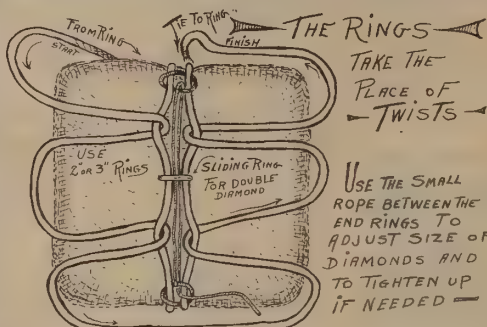 FROM RING
START
TIE TO RING
FINISH
THE RINGS
TAKE THE
PLACE OF
TWISTS
USE
2" OR 3" RINGS
SLIDING RING
FOR DOUBLE
DIAMOND
USE THE SMALL
ROPE BETWEEN THE
END RINGS TO
ADJUST SIZE OF
DIAMONDS AND
TO TIGHTEN UP
IF NEEDED —